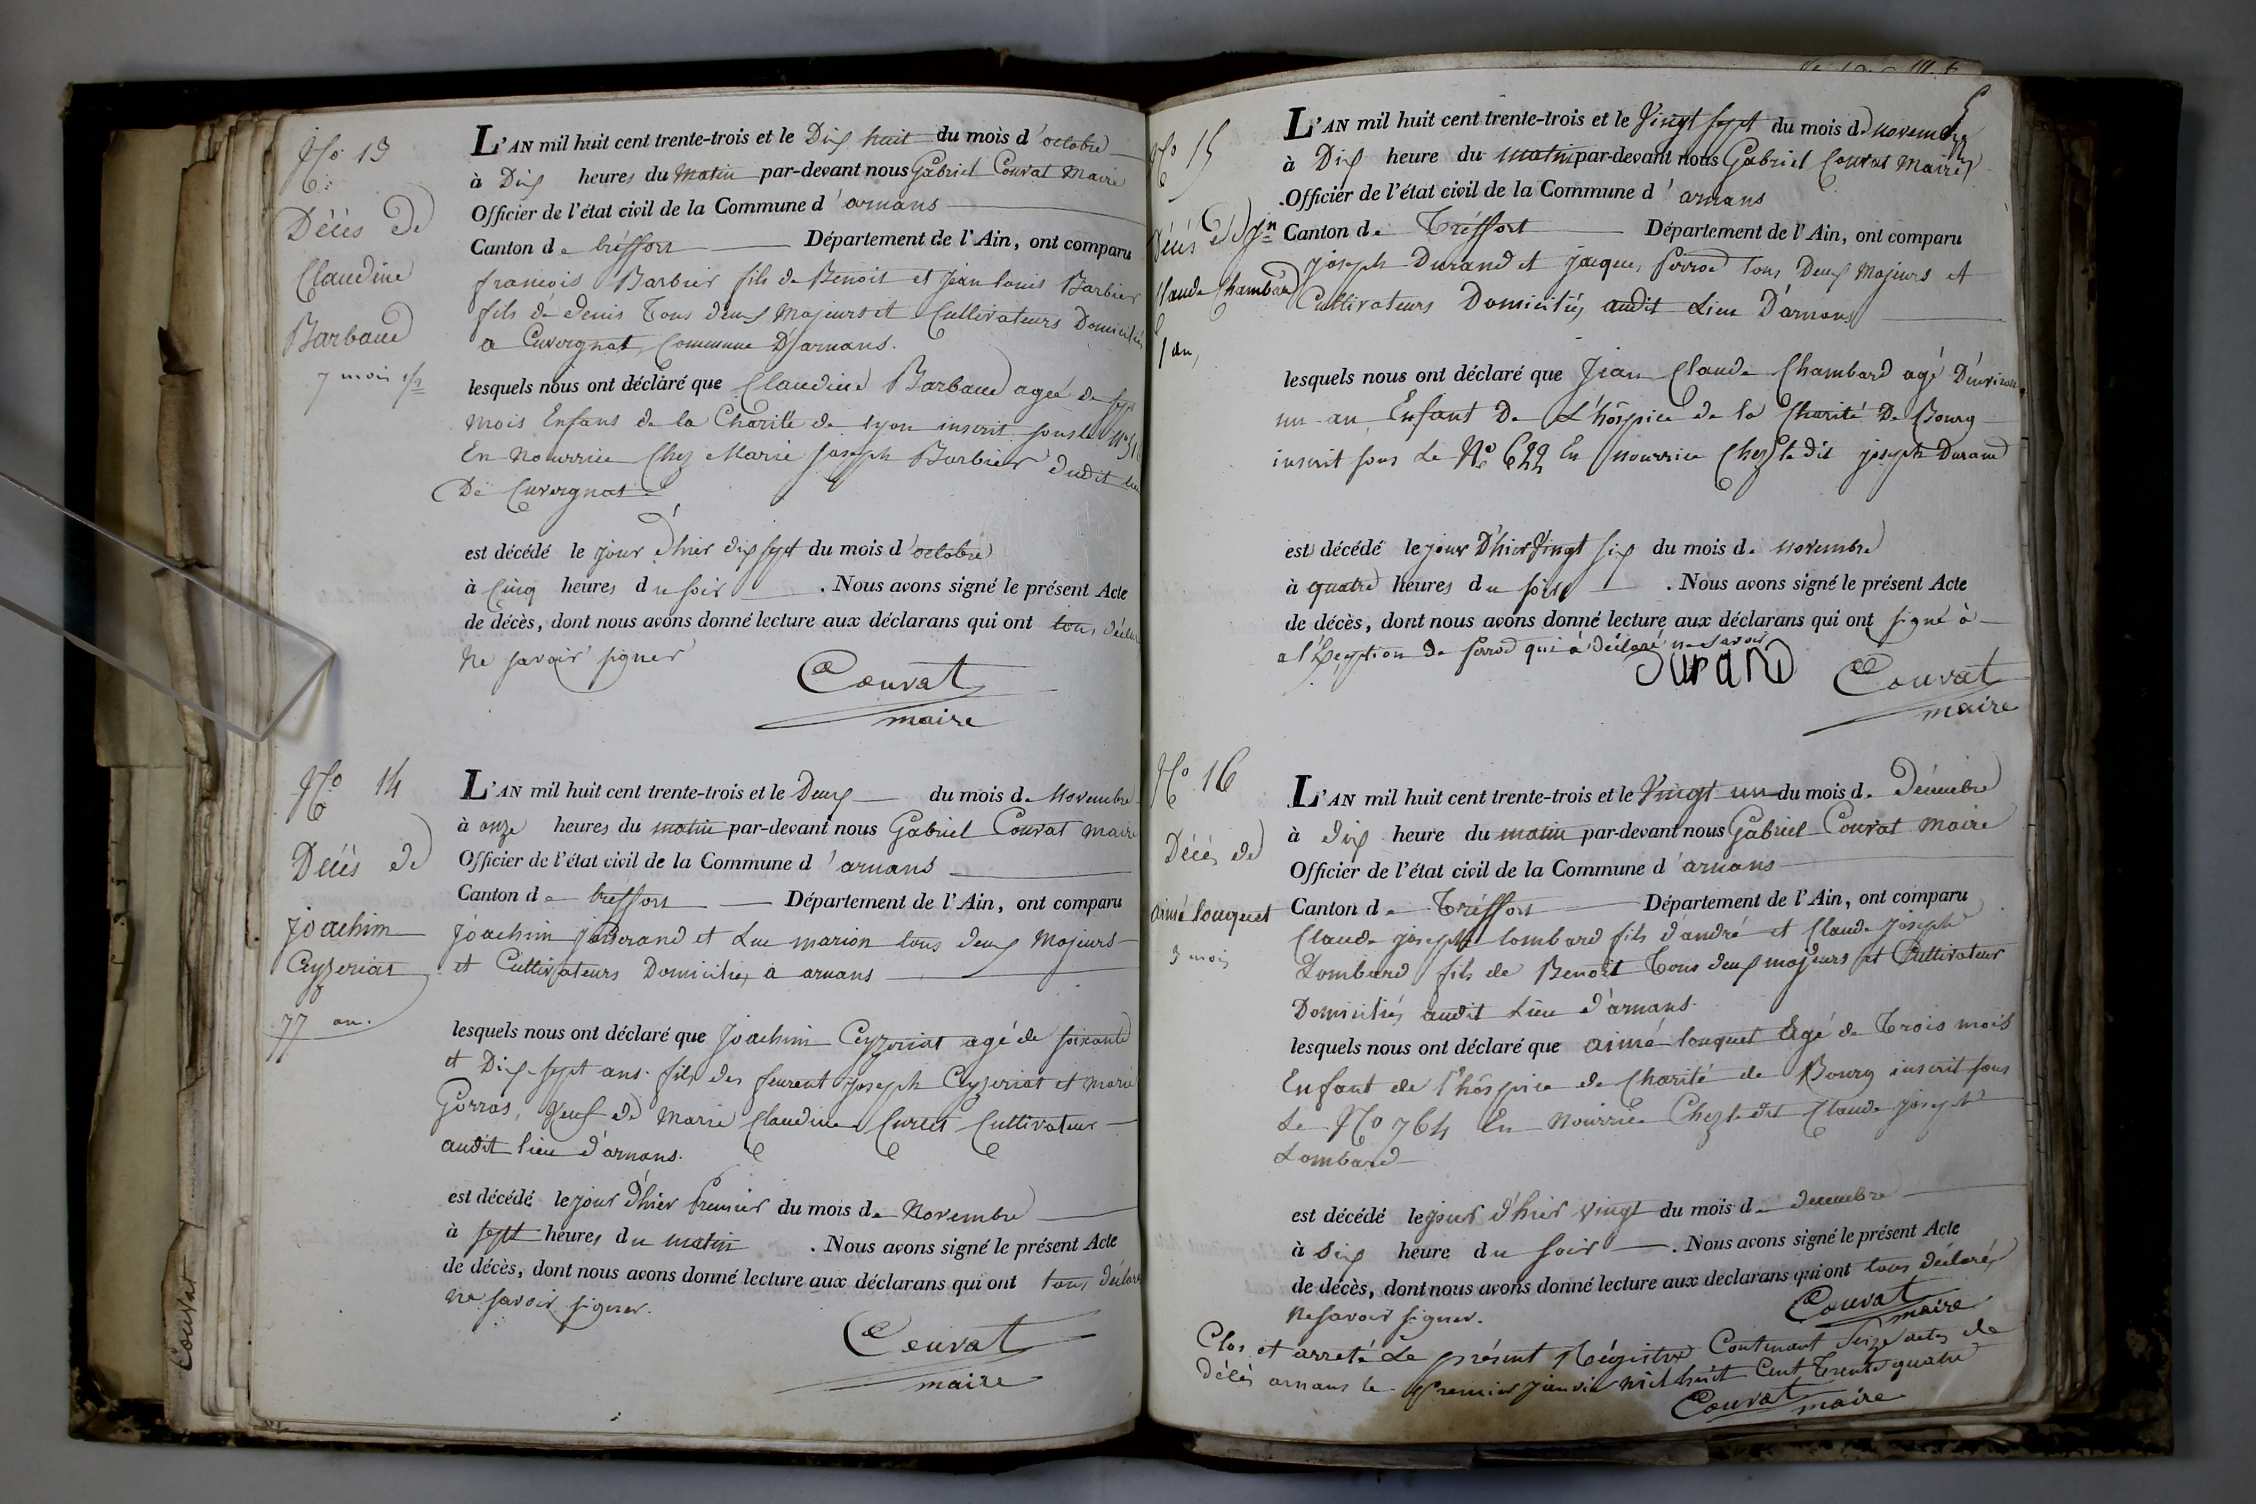 No 13
Décès de
Claudine
Barbaud
7 mois 1/2
L'AN mil huit cent trente-trois et le Dix huit du mois d'octobre
à Dix heures du matin par-devant nous Gabriel Couvat Maire
Officier de l'état civil de la Commune d'arnans
Canton de treffort Département de l'Ain, ont comparu
francois Barbier fils de Benoit et jean louis Barbier
fils de denis Tous deux Majeurs et Cultivateurs Domiciliés
a Cuvergnat Commune D'arnans.
lesquels nous ont déclaré que Claudine Barbaud agée de sept
mois Enfans de la Charité de lyon inscrit sous le No
En Nourrice Chez Marie Joseph Barbier dudit lieu
De Cuvergnat
est décédé le jour d'hier dix sept du mois d'octobre
à Cinq heures du soir . Nous avons signé le présent Acte
de décès, dont nous avons donné lecture aux déclarans qui ont tous déclaré
Ne savoir signer
Couvat
maire
No 14
Décès de
joachim
Ceyzeriat
77 an.
L'AN mil huit cent trente-trois et le Deux du mois de Novembre
à onze heures du matin par-devant nous Gabriel Couvat maire
Officier de l'état civil de la Commune d'arnans
Canton de treffort Département de l'Ain, ont comparu
joachim josserand et Luc marion tous deux Majeurs
et Cultivateurs Domiciliés à arnans
lesquels nous ont déclaré que Joachim Ceyzeriat agé de soixante
et Dix-sept ans fils des feurent joseph Ceyzeriat et Marie
Gorras, Veuf de Marie Claudine Curtet Cultivateur
audit lieu d'arnans.
est décédé le jour d'hier Premier du mois de Novembre
à sept heures du matin . Nous avons signé le présent Acte
de décès, dont nous avons donné lecture aux déclarans qui ont tous déclaré
ne savoir signer.
Couvat
maire
Couvat
No 15
Décès de Jn
Claude Chambard
1 an,
L'AN mil huit cent trente-trois et le Vingt sept du mois de novembre
à Dix heure du matin par-devant nous Gabriel Couvat Maire
Officier de l'état civil de la Commune d'arnans
Canton de Tréffort Département de l'Ain, ont comparu
joseph Durand et jacques perrod tous Deux Majeurs et
Cultivateurs Domiciliés audit Lieu D'arnans
lesquels nous ont déclaré que Jean Claude Chambard agé D'environ
un an Enfant De L'hôspice de la Charité De Bourg
inscrit sous Le No 622 En nourrice Chez le dit joseph Durand
est décédé le jour D'hier Vingt six du mois de novembre
à quatre heures du soir . Nous avons signé le présent Acte
de décès, dont nous avons donné lecture aux déclarans qui ont signé à
a l'Exception de perrod qui à déclaré ne savoir
Durand
Couvat
maire
No 16
Décès de
aimé louquet
3 mois
L'AN mil huit cent trente-trois et le Vingt un du mois de Décembre
à dix heure du matin par-devant nous Gabriel Couvat Maire
Officier de l'état civil de la Commune d'arnans
Canton de Tréffort Département de l'Ain, ont comparu
Claude joseph lombard fils d'andré et Claude Joseph
Lombard fils de Benoit Tous deux majeurs et Cultivateur
Domiciliés audit Lieu d'arnans.
lesquels nous ont déclaré que aimé louquet Agé de Trois mois
Enfant de l'hôspice de Charité de Bourg inscrit sous
Le No 764 En Nourrice Chez le dit Claude joseph
Lombard
est décédé le jour d'hier vingt du mois de decembre
à Six heure du soir . Nous avons signé le présent Acte
de décès, dont nous avons donné lecture aux declarans qui ont tous déclarés
Ne savoir signer.
Couvat
maire
Clos et arreté Le présent Régistre Contenant Seize actes de
Décès arnans le Premier janvier mil huit Cent Trente quatre
Couvat
maire